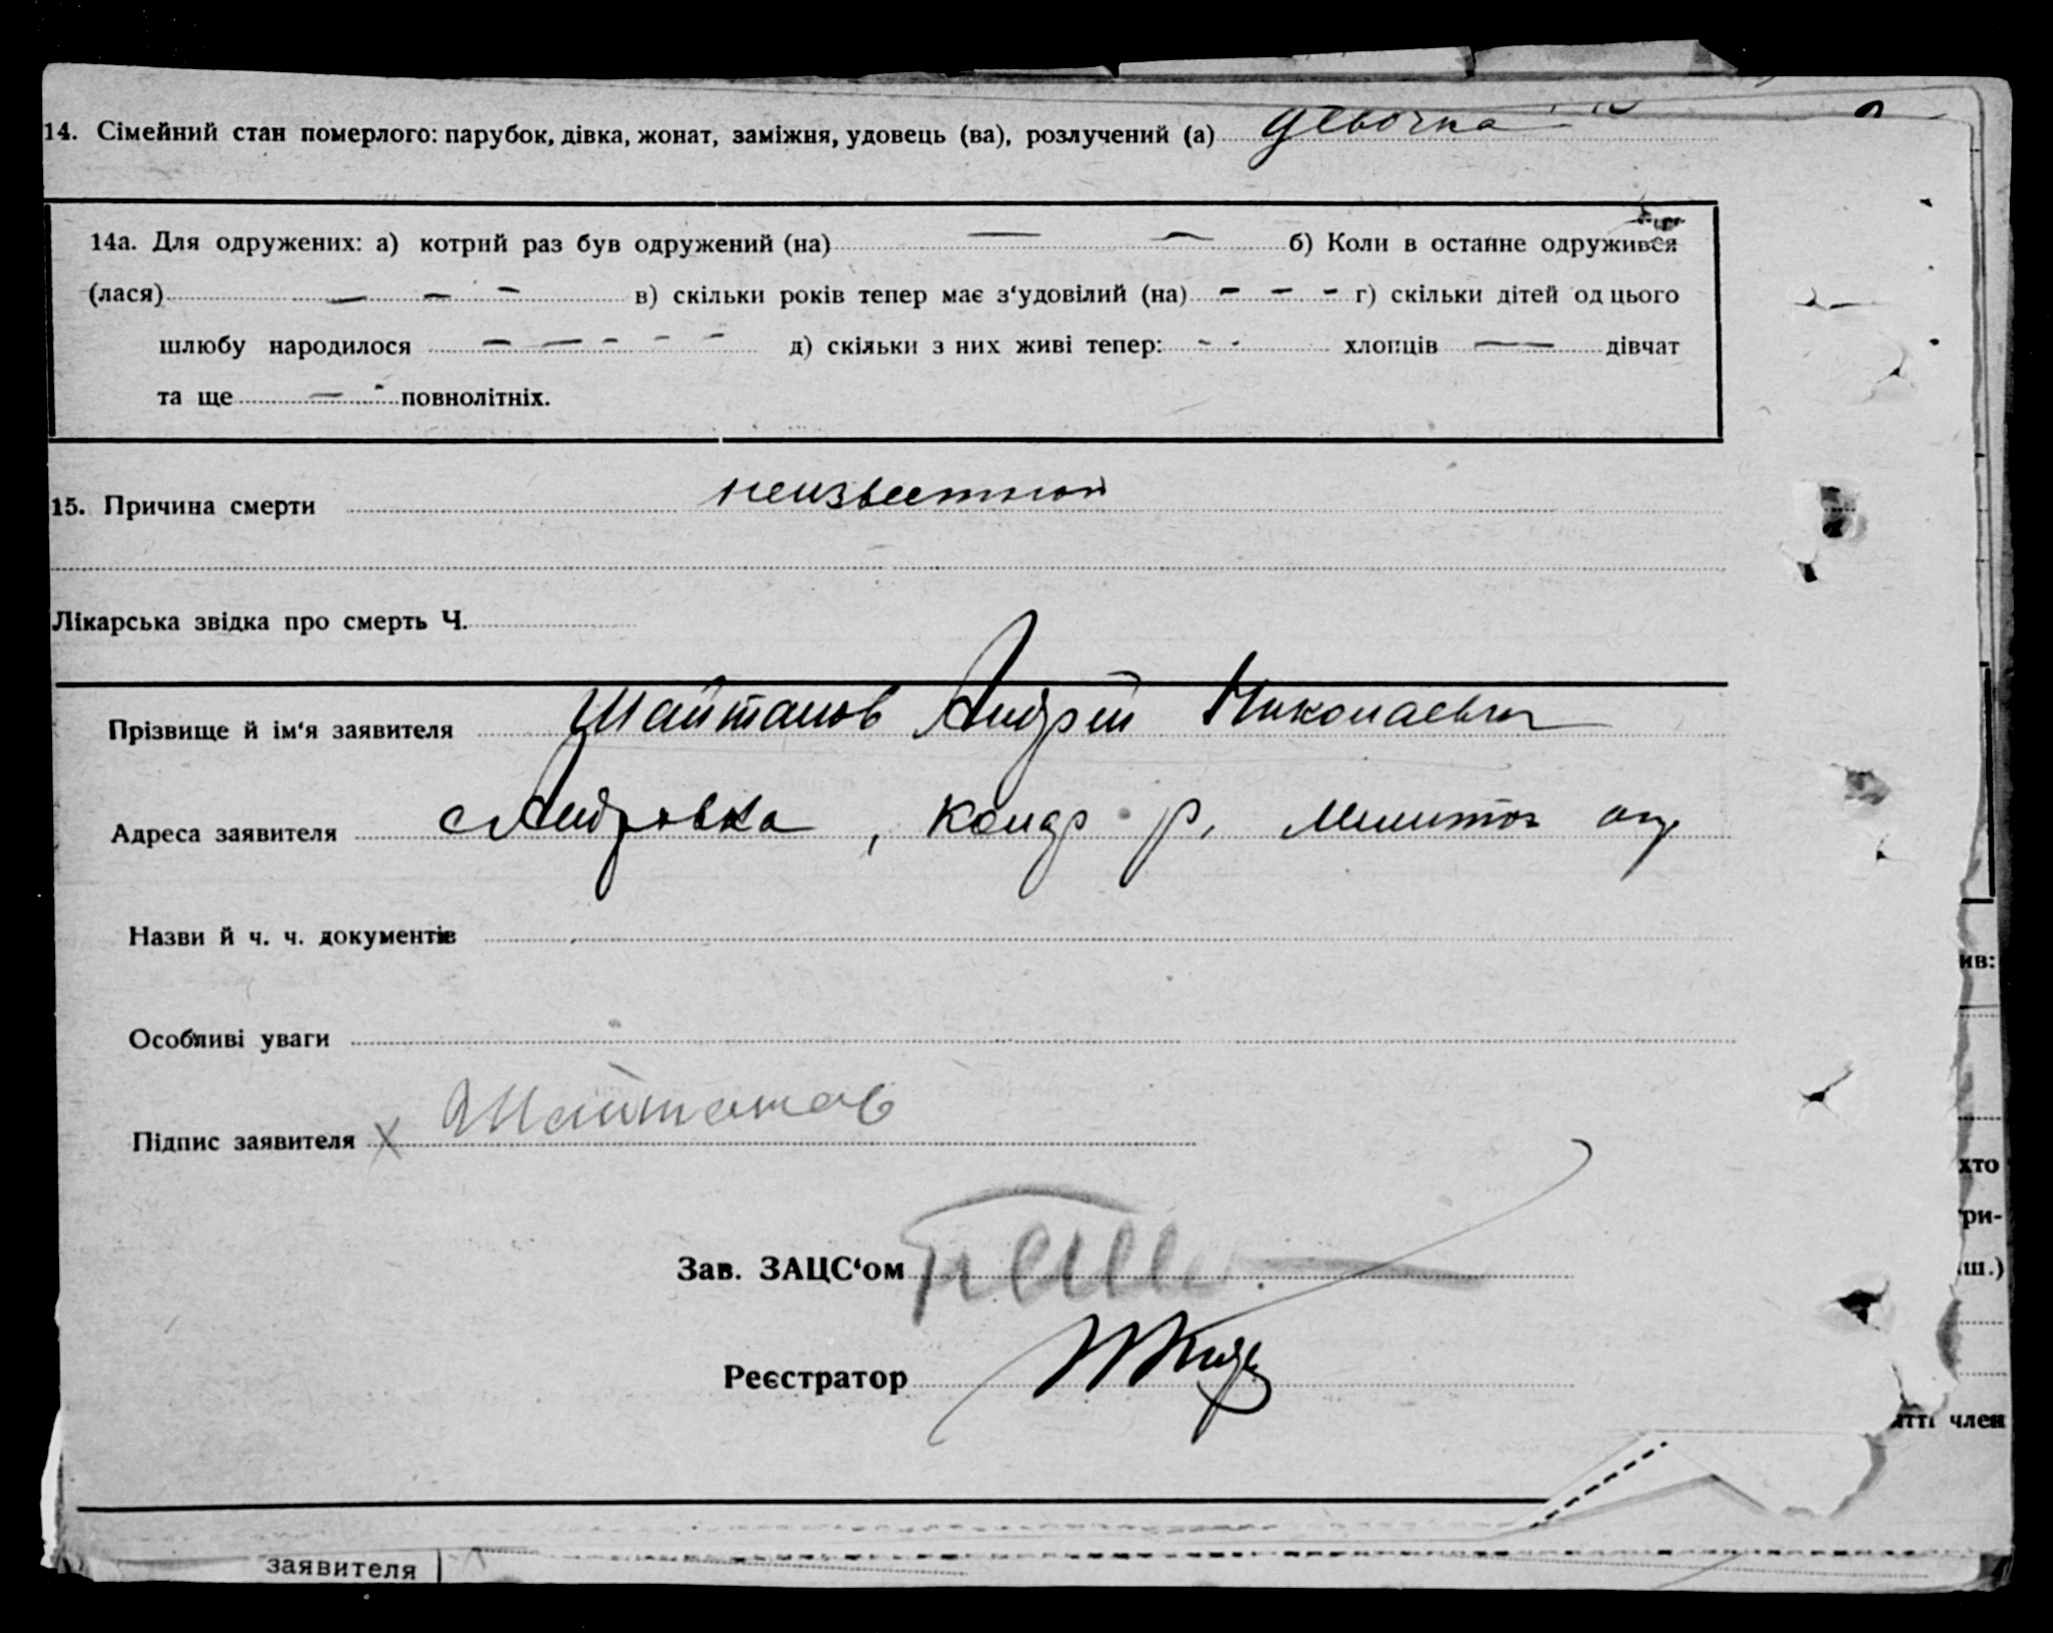 14. Сімейний стан померлого: парубок, дівка, жонат, заміжня, удовець (ва), розлучений (а) девочка
14а. Для одружених: а) котрий раз був одружений (на) — — б) Коли в останне одружився
(лася) — — — в) скільки років тепер має з‘удовілий (на) - - - г) скільки дітей од цього
шлюбу народилося — — - - - д) скільки з них живі тепер: - - хлопців — дівчат
та ще — - повнолітніх.
15. Причина смерти неизвестной
Лікарська звідка про смерть Ч.
Прізвище й ім‘я заявителя Шайтанов Андрей Николаевич
Адреса заявителя с Андровка, Конар р,
Назви й ч. ч. документів
Особливі уваги
Підпис заявителя х Шайтанов
Зав. ЗАЦС‘ом
Реєстратор
ив:
хто
ри-
ш.)
ітті член
заявителя